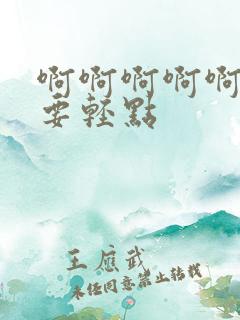 啊啊啊啊啊
要轻點
王應武
未任同意禁止转载